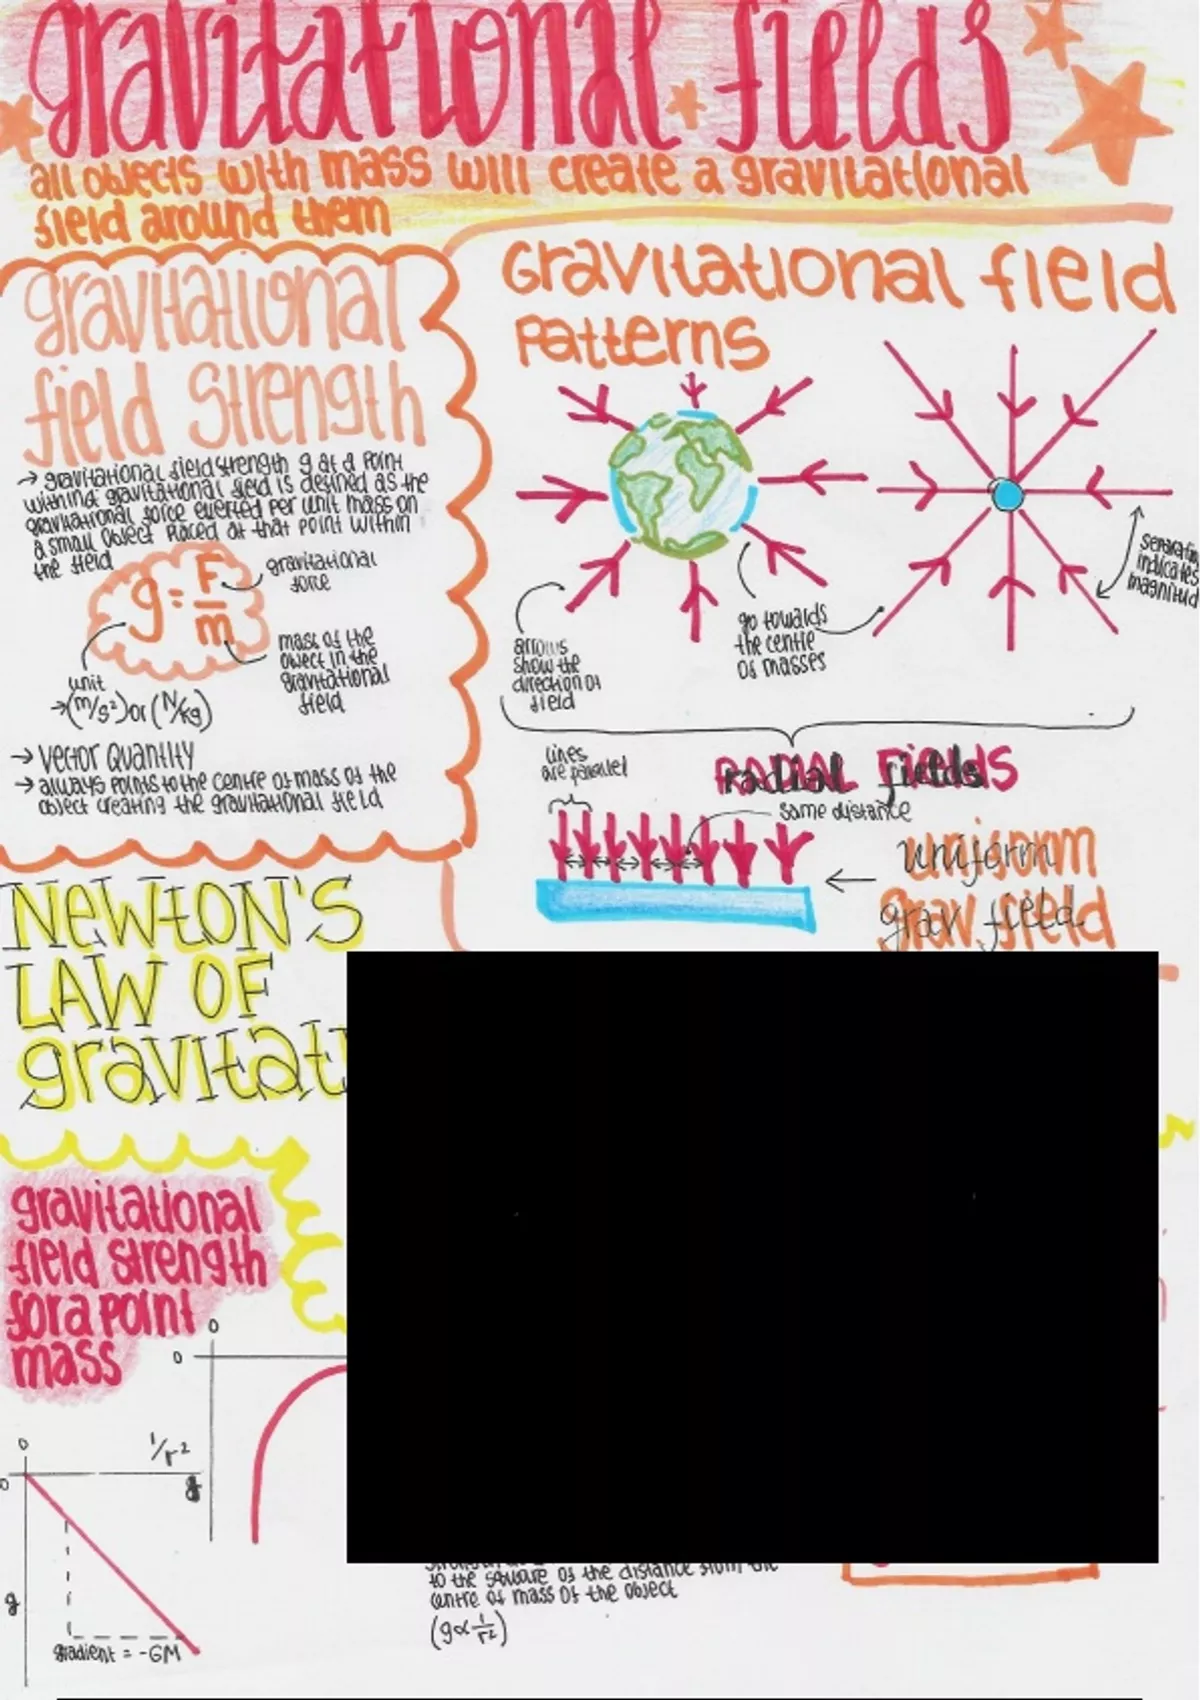 gravitational fields
all objects with mass will create a gravitational
field around them
gravitational
field strength
→ gravitational field strength g at a point
within a gravitational field is defined as the
gravitational force exerted per unit mass on
a small object placed at that point within
the field
g = F/m
gravitational
force
mass of the
object in the
gravitational
field
unit
→ (m/s²) or (N/kg)
→ Vector Quantity
→ always points to the centre of mass of the
object creating the gravitational field
Gravitational field
Patterns
arrows
show the
direction of
field
go towards
the centre
of masses
indicates
magnitud
lines
are parallel
RADIAL FIELDS
radial fields
same distance
←
uniform
grav field
NEWTON'S
LAW OF
gravitati
gravitational
field strength
for a point
mass
0
0
g
0
1/r²
g
gradient = -GM
to the square of the distance from the
centre of mass of the object
(g∝1/r²)